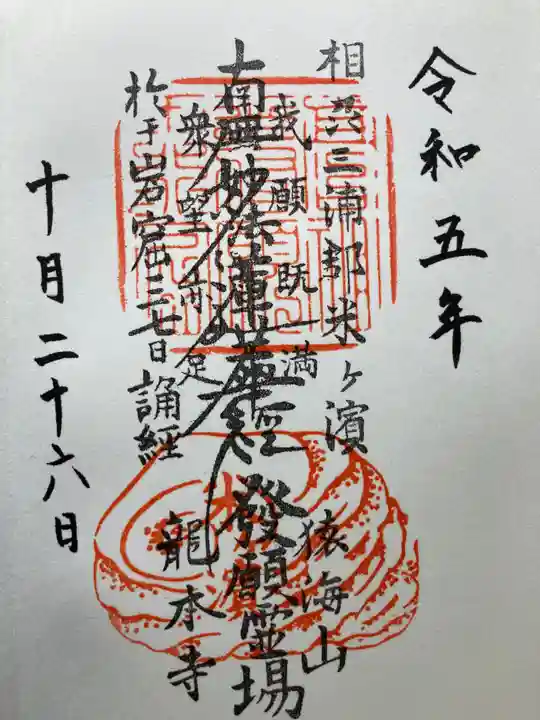 令和五年
相州三浦郡米ヶ濱
猿海山
我願既満
南無妙法蓮華経
發願霊場
衆望亦足
龍本寺
於于岩窟三七日誦経
十月二十六日